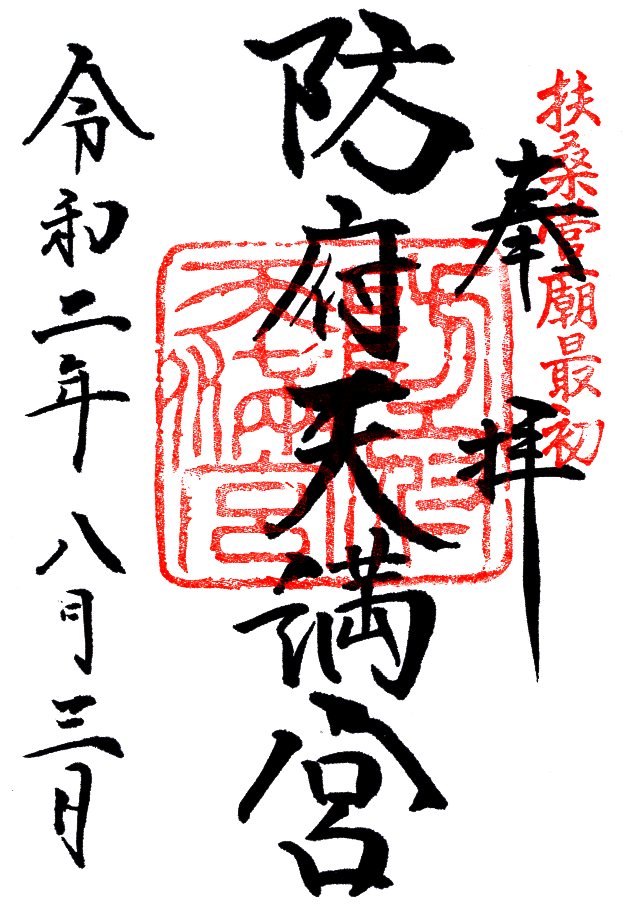 扶桑菅廟最初
奉拝
防府天満宮
防府
天満宮
令和二年八月三日